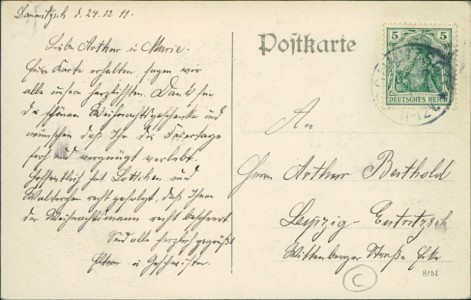 d. 24.12.11.
Liebe Arthur u Marie.
Eure Karte erhalten, sagen wir
alle unsern herzlichsten Dank für
die schönen Weihnachtsgeschenke und
wünschen daß Ihr die Feiertage
froh und vergnügt verlebt.
Hoffentlich hat Lottchen und
recht gefolgt, daß Ihnen
der Weihnachtsmann recht beschert
Seid alle herzlich gegrüßt
Eltern u Geschwister.
Postkarte
5 5
DEUTSCHES REICH
An
Herrn Arthur Berthold
Leipzig-Eutritzsch
Wittenberger Straße Ecke
C
8/51